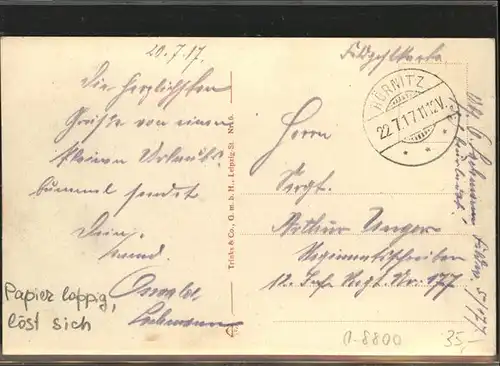 20.7.17.
Die herzlichsten
Grüße von einem
kleinen Urlaubs-
bummel sendet
Dein
Freund
Oswald
Lehmann
Papier lappig,
löst sich
Trinks & Co., G. m. b. H., Leipzig-St.
Feldpostkarte
HÖRNITZ
22.7.17.11-12V.
Herrn
Sergt.
Arthur Unger
Regimentsschreiber
12. Inf. Regt. Nr. 177
Lehmann
beurlaubt!
0-8800
35,-